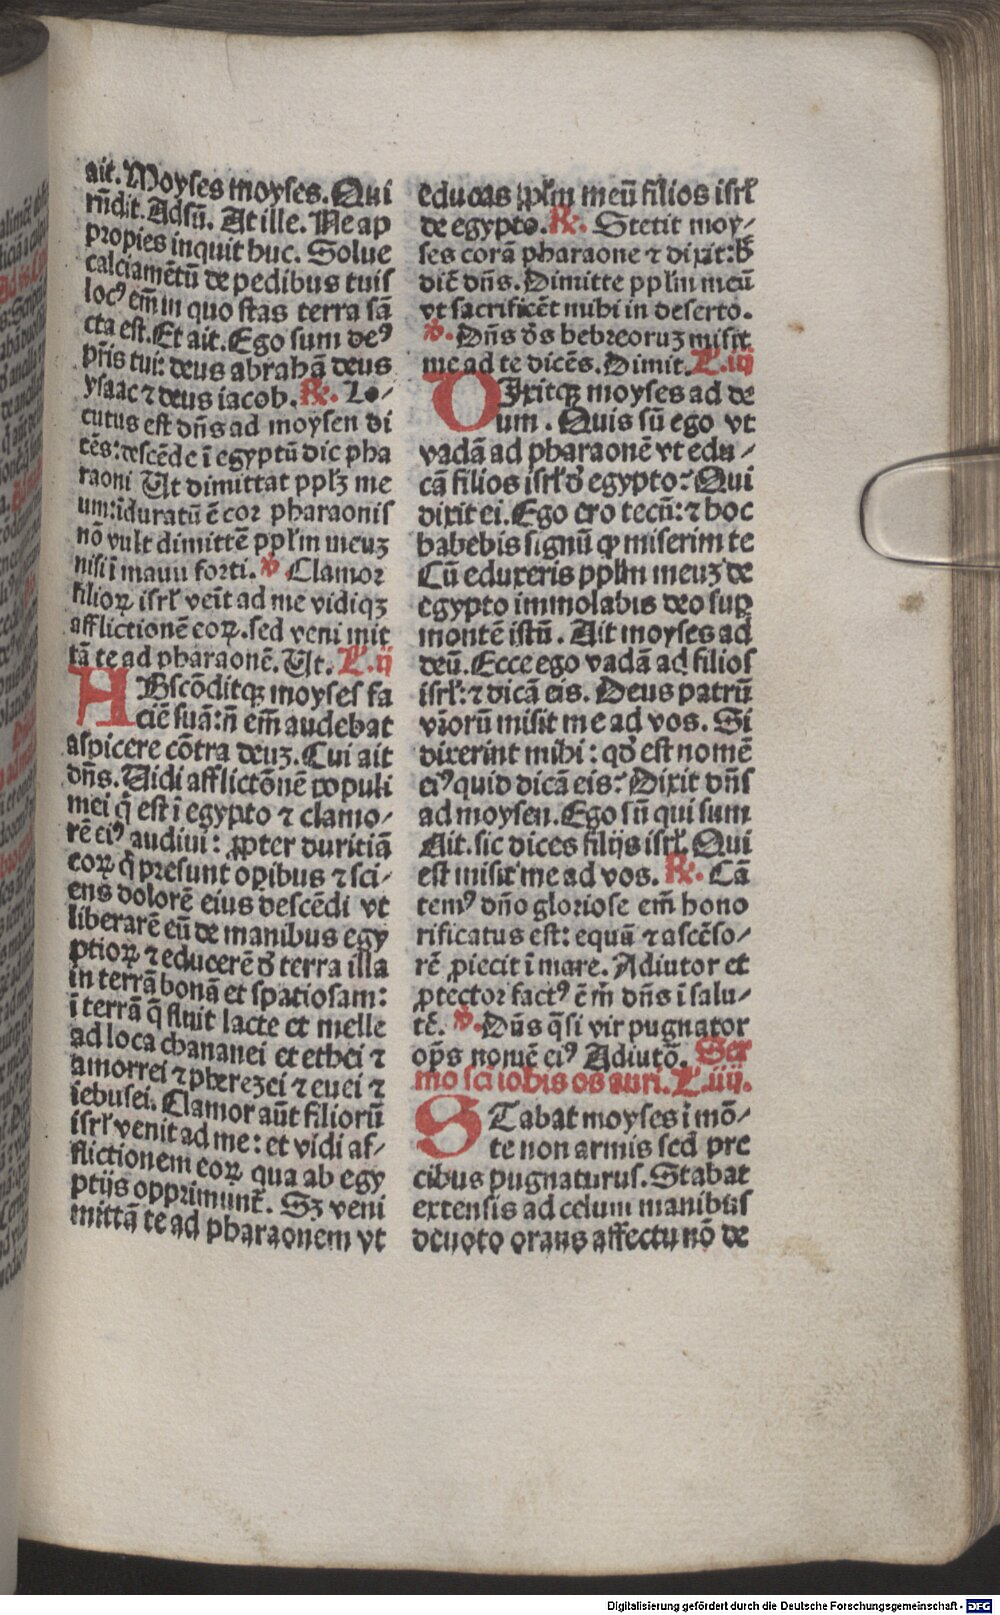 ait. Moyses moyses. Qui
rn̄dit. Adsū. At ille. Ne ap
propies inquit huc. Solue
calciamētū de pedibus tuis
locꝰ em̄ in quo stas terra sā
cta est. Et ait. Ego sum deꝰ
pr̄is tui: deus abrahā deus
ysaac ⁊ deus iacob. ℟. Lo⸗
cutus est dn̄s ad moysen di
cēs: descēde ī egyptū dic pha
raoni Ut dimittat pplꝫ me
um: īduratū ē cor pharaonis
nō vult dimittē pplm̄ meuꝫ
nisi ī manu forti. ℣. Clamor
filioꝝ isrl̄ venit ad me vidiqꝫ
afflictionē eoꝝ. sed veni mit
tā te ad pharaonē. Ut. L. ij
ABscōditqꝫ moyses fa
ciē suā: n̄ em̄ audebat
aspicere cōtra deuꝫ. Cui ait
dn̄s. Uidi afflictōnē populi
mei q̄ est ī egypto ⁊ clamo⸗
rē eiꝰ audiui: ꝓpter duritiā
eoꝝ q̄ presunt oꝑibus ⁊ sci⸗
ens dolorē eius descēdi vt
liberarē eū de manibus egy
ptioꝝ ⁊ educerē d̄ terra illa
in terrā bonā et spatiosam:
ī terrā q̄ fluit lacte et melle
ad loca chananei et ethei ⁊
amorrei ⁊ pherezei ⁊ euei ⁊
iebusei. Clamor aūt filiorū
isrl̄ venit ad me: et vidi af⸗
flictionem eoꝝ qua ab egy
ptijs opprimunt̄. Sꝫ veni
mittā te ad pharaonem vt
educas pplm̄ meū filios isrl̄
de egypto. ℟. Stetit moy⸗
ses corā pharaone ⁊ dixit: h̄
dic̄ dn̄s. Dimitte pplm̄ meū
vt sacrificēt mihi in deserto.
℣. Dn̄s d̄s hebreoruꝫ misit
me ad te dicēs. Dimit. L. iij
DIxitqꝫ moyses ad de
um. Quis sū ego vt
vadā ad pharaonē vt edu⸗
cā filios isrl̄ d̄ egypto? Qui
dixit ei. Ego ero tecū: ⁊ hoc
habebis signū ꝙ miserim te
Cū eduxeris pplm̄ meuꝫ de
egypto immolabis deo suꝑ
montē istū. Ait moyses ad
deū. Ecce ego vadā ad filios
isrl̄: ⁊ dicā eis. Deus patrū
vr̄orū misit me ad vos. Si
dixerint mihi: qd̄ est nomē
eiꝰ quid dicā eis? Dixit dn̄s
ad moysen. Ego sū qui sum
Ait. sic dices filijs isrl̄. Qui
est misit me ad vos. ℟. Cā
temꝰ dn̄o gloriose em̄ hono
rificatus est: equū ⁊ ascēso⸗
rē ꝓiecit ī mare. Adiutor et
ꝓtector factꝰ ē m̄ dn̄s ī salu⸗
tē. ℣. Dn̄s q̄si vir pugnator
op̄s nomē eiꝰ Adiutō. Ser
mo sci iohis os auri. L. iiij.
STabat moyses ī mō⸗
te non armis sed pre
cibus pugnaturus. Stabat
extensis ad celum manibus
deuoto orans affectu nō de
Digitalisierung gefördert durch die Deutsche Forschungsgemeinschaft - DFG